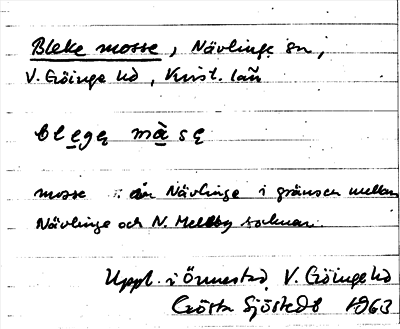 Bleke mosse, Nävlinge sn,
V. Göinge hd, Krist. län
blegę màsę
mosse i Nävlinge i gränsen mellan
Nävlinge och N. Mellby socknar.
Uppt. i Önnestad, V. Göinge hd
Gösta Sjöstedt 1963